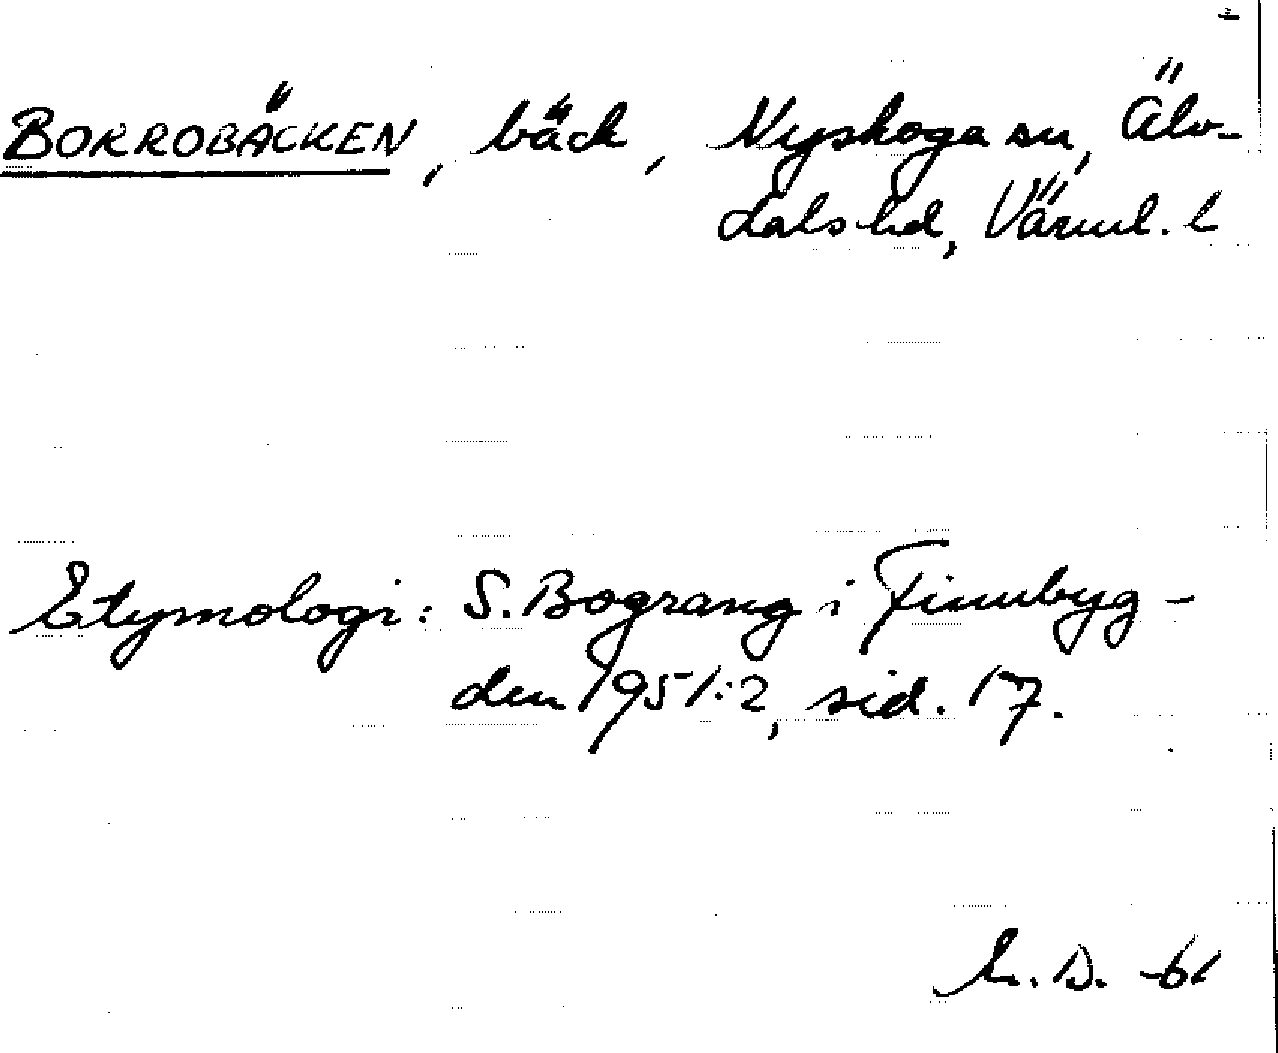 BORROBÄCKEN, bäck, Nyskoga sn, Älv-
dals hd, Värml. l
Etymologi: S. Bograng i Finnbyg-
den 1951:2, sid. 17.
D. -61